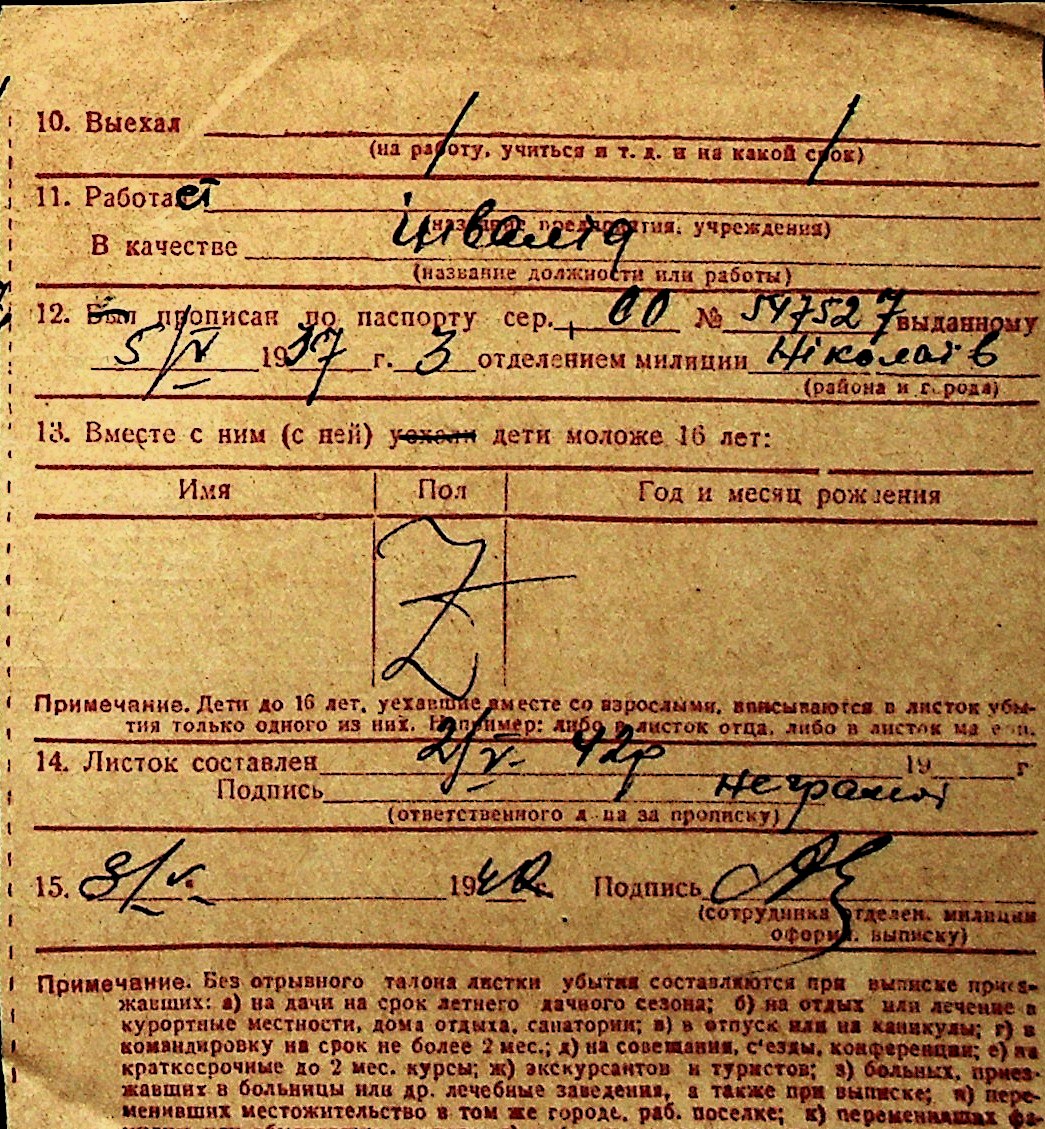 10. Выехал
(на работу, учиться и т. д. и на какой срок)
11. Работает
(название предприятия, учреждения)
В качестве інвалід
(название должности или работы)
12. Был прописан по паспорту сер. № 547527 выданному
5/V 1937 г. 3 отделением милиции Ніколаїв
(района и города)
13. Вместе с ним (с ней) уехали дети моложе 16 лет:
Имя Пол Год и месяц рождения
Z
Примечание. Дети до 16 лет, уехавшие вместе со взрослыми, вписываются в листок убы-
тия только одного из них. Например: либо в листок отца, либо в листок матери.
14. Листок составлен 2/V. 42р 19 г
Подпись неграмот
(ответственного лица за прописку)
15. 3/V. 1942 г. Подпись
(сотрудника отделен. милиции
оформ. выписку)
Примечание. Без отрывного талона листки убытия составляются при выписке приез-
жавших: а) на дачи на срок летнего дачного сезона; б) на отдых или лечение в
курортные местности, дома отдыха, санатории; в) в отпуск или на каникулы; г) в
командировку на срок не более 2 мес.; д) на совещания, с'езды, конференции; е) на
краткосрочные до 2 мес. курсы; ж) экскурсантов и туристов; з) больных, приез-
жавших в больницы или др. лечебные заведения, а также при выписке; и) пере-
менивших местожительство в том же городе, раб. поселке; к) переменивших фа-